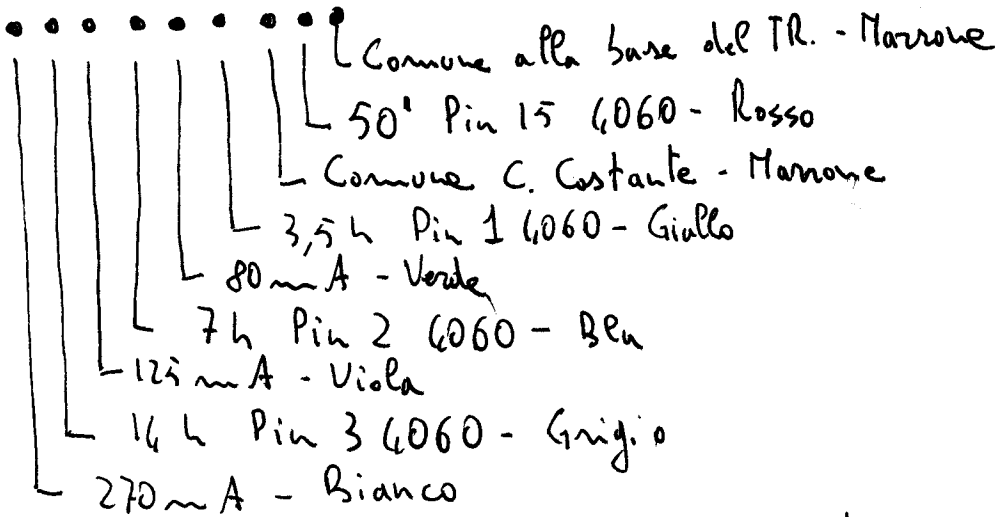 Comune alla base del TR. - Marrone
50' Pin 15 4060 - Rosso
Comune C. Costante - Marrone
3,5 h Pin 1 4060 - Giallo
80 mA - Verde
7 h Pin 2 4060 - Blu
125 mA - Viola
14 h Pin 3 4060 - Grigio
270 mA - Bianco